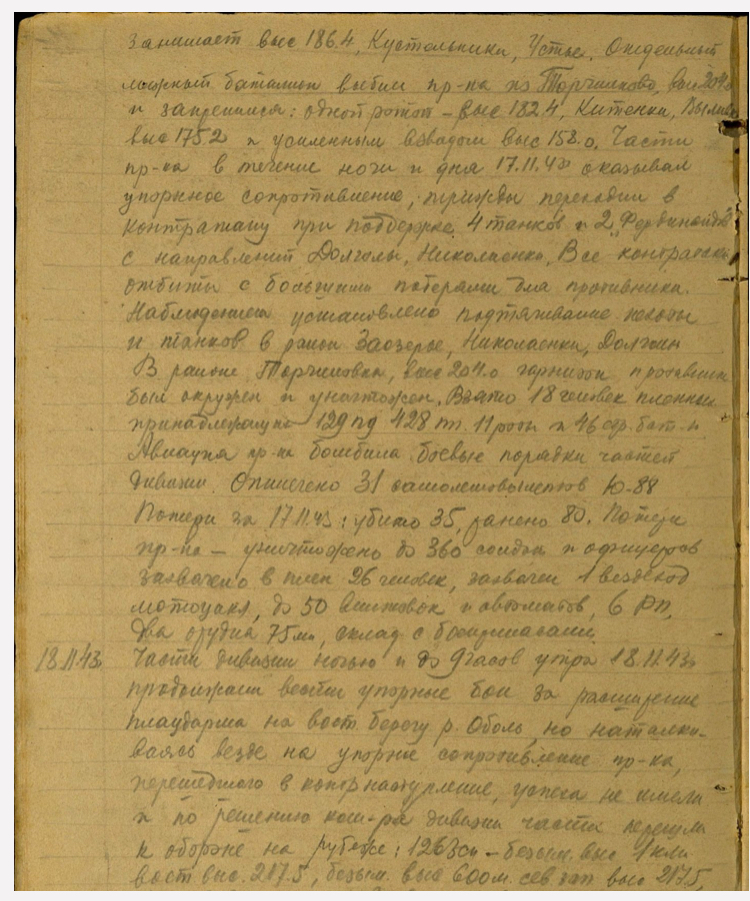 занимает выс 186.4, Кустольники, Устье. Отдельный
лыжный батальон выбил пр-ка из Торчилово, выс 204.0
и закрепился: одной ротой – выс 182.4, Китенки,
выс 175.2 и усиленным взводом выс 158.0. Части
пр-ка в течение ночи и дня 17.11.43 оказывал
упорное сопротивление, трижды переходил в
контратаку при поддержке 4 танков и 2 „Фердинандов"
с направлений Должа, Николаенки. Все контратаки
отбиты с большими потерями для противника.
Наблюдением установлено подтягивание пехоты
и танков в район Заозерье, Николаенки,
В районе выс 204.0 гарнизон противника
был окружен и уничтожен. Взято 18 человек пленных
принадлежащих 129 пд 428 пп. 11 роты и 46 стр. бат-н
Авиация пр-ка бомбила боевые порядки частей
дивизии. Отмечено 31 самолетовылетов Ю-88
Потери за 17.11.43: убито 35, ранено 80. Потери
пр-ка – уничтожено до 360 солдат и офицеров
захвачено в плен 26 человек, захвачен 1 вездеход
мотоцикл, до 50 винтовок и автоматов, 6 РП,
два орудия 75мм, склад с боеприпасами.
18.11.43 Части дивизии ночью и до 9 часов утра 18.11.43
продолжали вести упорные бои за расширение
плацдарма на вост берегу р. Оболь, но наталки-
ваясь везде на упорное сопротивление пр-ка,
перешедшего в контрнаступление, успеха не имели
и по решению ком-ра дивизии части перешли
к обороне на рубеже: 1263сп – безым. выс 1 км
вост выс. 217.5, безым. выс 600м. сев зап выс 217.5,